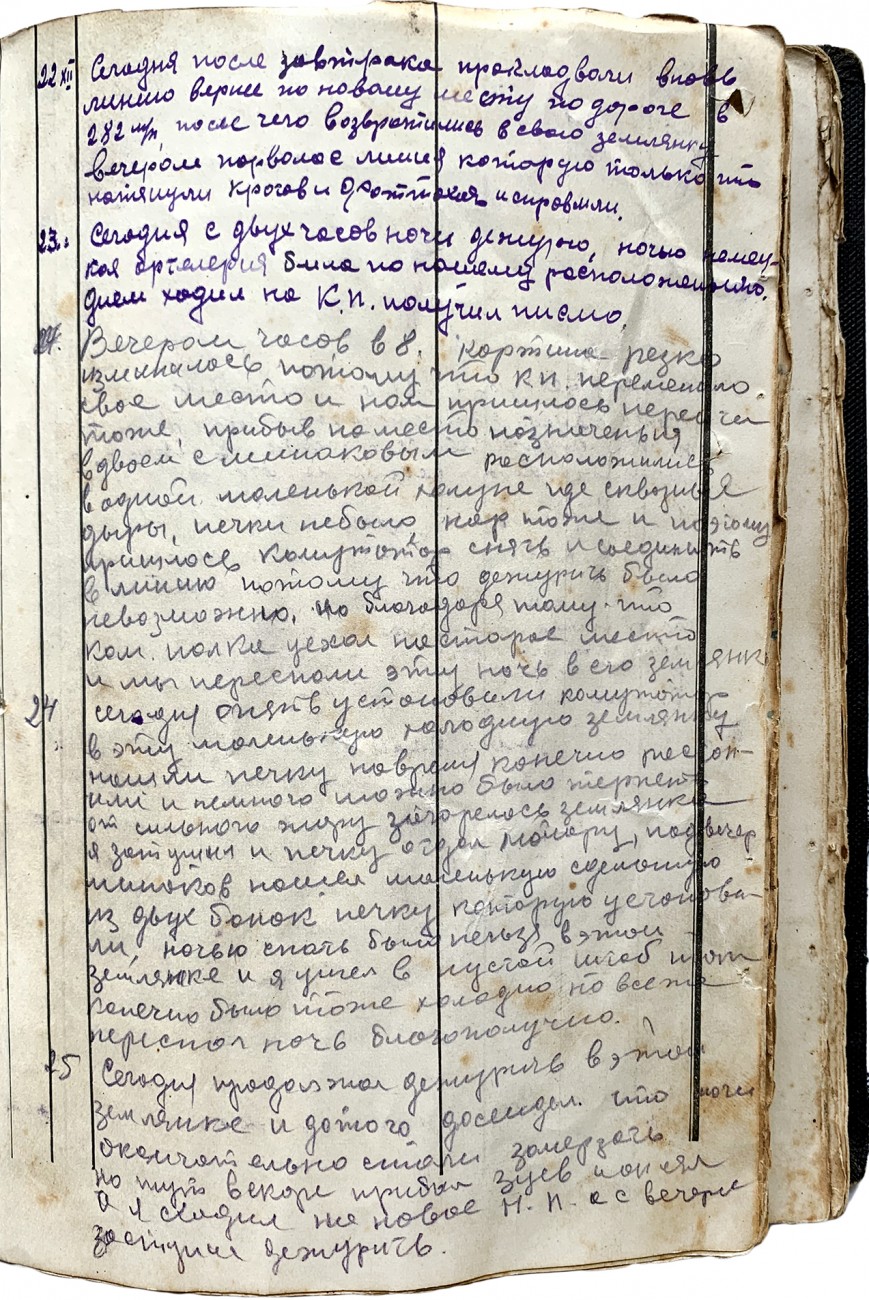 22 XII Сегодня после завтрака прокладвали вновь
линию вернее по новому месту по дороге в
282 м/п, после чего возвротились в свою землянку
вечером порволас линия которую только что
нотянули Кротов и и справили.
23. Сегодня с двух часов ночи дежурю, ночью немец-
кая артелерия била по нашему расположению.
днем ходил на К.П. получил писмо.
24. Вечером часов в 8. картина резко
изминилось потому что К.П. переменило
свое место и нам пришлось перейти
тоже, прибыв на место назначенья
вдвоем с минаковым расположились
в одной маленькой халупе где сквозные
дыры, печки небыло нар тоже и поэтому
пришлось комутотор снять и соединить
в линию потому что дежурить было
невозможно, но благодаря тому что
ком. полка уехал на старое место
и мы переспали эту ночь в его землянке
24 сегодня опять установили комутотор
в эту маленькую холодную землянку
нашли печку наврем конечно растоп-
или и немного можно было терпеть
от сильного жару загорелось землянка
я затушил и печку отдал майору, под вечер
минаков нашел маленькую сделонную
из двух банок печку которую установи-
ли, ночью спать было нельзя в этой
землянке и я ушел в пустой штаб там
конечно было тоже холодно но все же
переспал ночь благополучно.
25 Сегодня продолжал дежурить в этой
землянке и дотого досендел что ноги
окончательно стали замерзать
но тут вскоре прибыл зуев
а я сходил на новое Н.П. а с вечера
заступил дежурить.